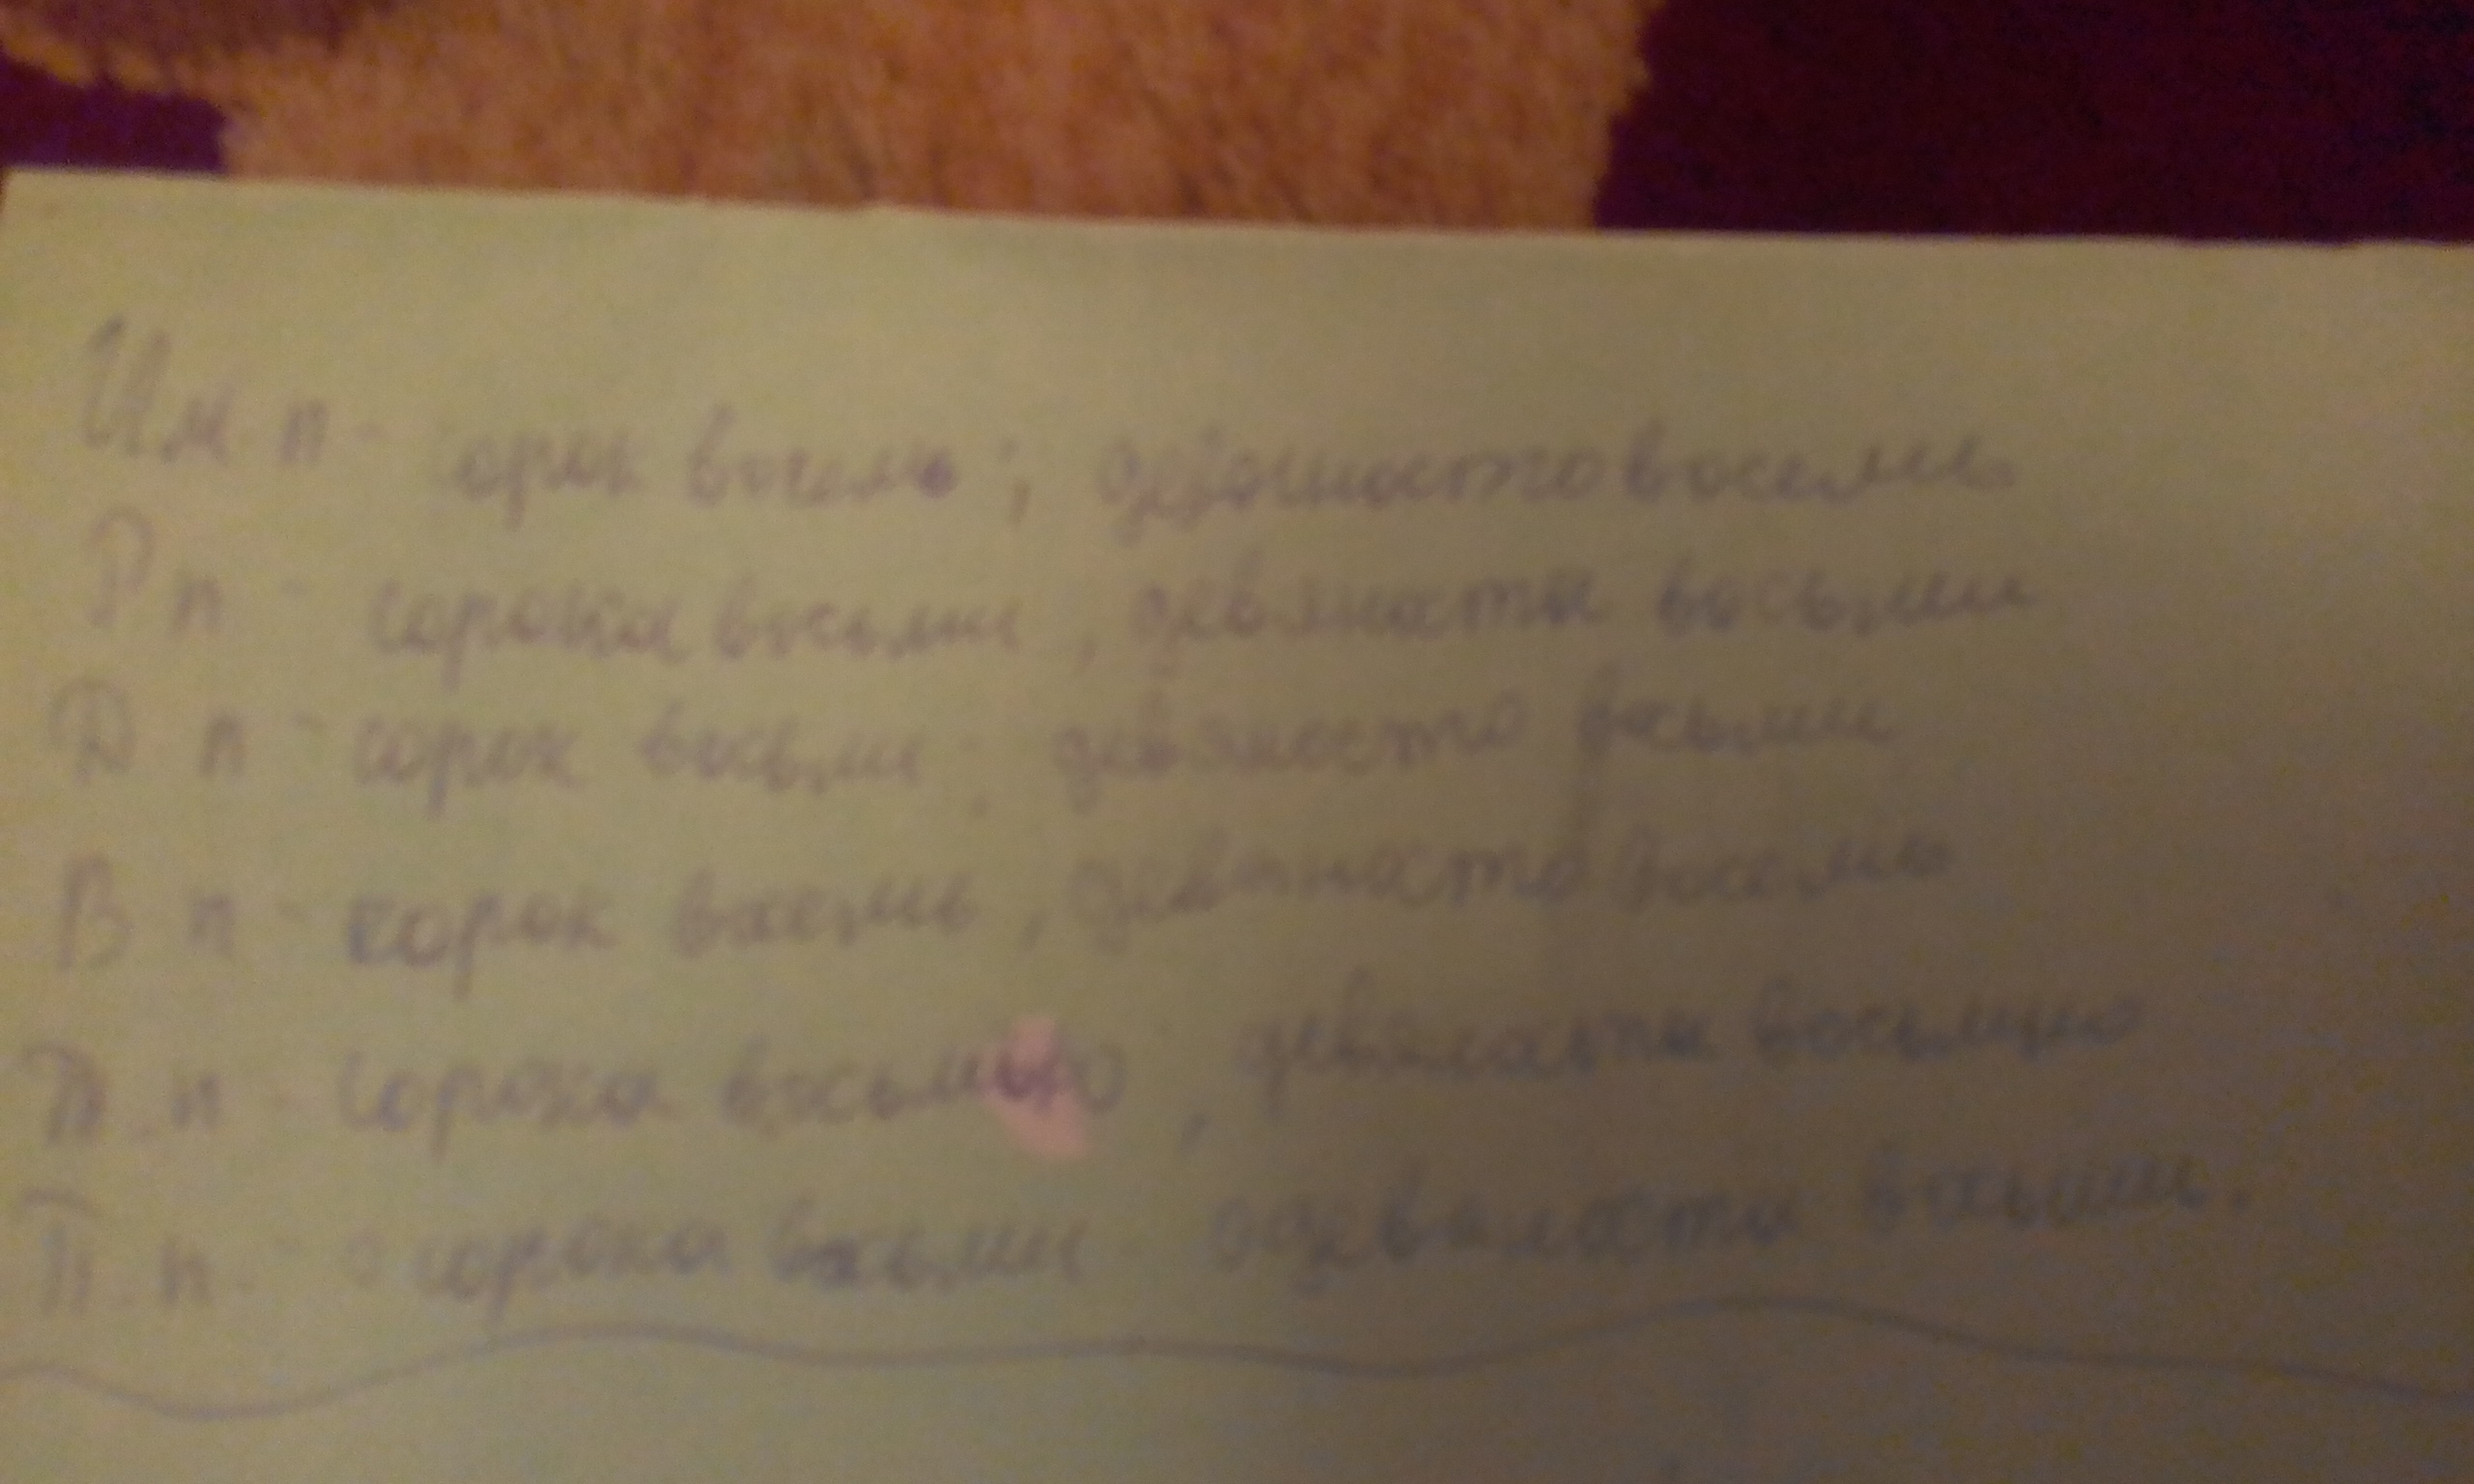 Им п - сорок восемь; девяносто восемь
Р п - сорока восьми, девяноста восьми
Д п - сорок восьми; девяносто восьми
В п - сорок восемь, девяносто восемь
Т. п - сорока восьмью, девяноста восьмью
П. п. - о сорока восьми о девяноста восьми.